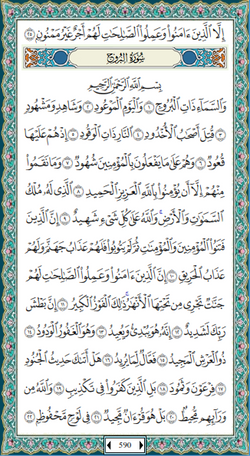 إِلَّا ٱلَّذِينَ ءَامَنُوا۟ وَعَمِلُوا۟ ٱلصَّٰلِحَٰتِ لَهُمْ أَجْرٌ غَيْرُ مَمْنُونٍۭ ٢٥
سُورَةُ البُرُوجِ
بِسْمِ ٱللَّهِ ٱلرَّحْمَٰنِ ٱلرَّحِيمِ
وَٱلسَّمَآءِ ذَاتِ ٱلْبُرُوجِ ١ وَٱلْيَوْمِ ٱلْمَوْعُودِ ٢ وَشَاهِدٍ وَمَشْهُودٍ
٣ قُتِلَ أَصْحَٰبُ ٱلْأُخْدُودِ ٤ ٱلنَّارِ ذَاتِ ٱلْوَقُودِ ٥ إِذْ هُمْ عَلَيْهَا
قُعُودٌ ٦ وَهُمْ عَلَىٰ مَا يَفْعَلُونَ بِٱلْمُؤْمِنِينَ شُهُودٌ ٧ وَمَا نَقَمُوا۟
مِنْهُمْ إِلَّآ أَن يُؤْمِنُوا۟ بِٱللَّهِ ٱلْعَزِيزِ ٱلْحَمِيدِ ٨ ٱلَّذِى لَهُۥ مُلْكُ
ٱلسَّمَٰوَٰتِ وَٱلْأَرْضِ ۚ وَٱللَّهُ عَلَىٰ كُلِّ شَىْءٍ شَهِيدٌ ٩ إِنَّ ٱلَّذِينَ
فَتَنُوا۟ ٱلْمُؤْمِنِينَ وَٱلْمُؤْمِنَٰتِ ثُمَّ لَمْ يَتُوبُوا۟ فَلَهُمْ عَذَابُ جَهَنَّمَ وَلَهُمْ
عَذَابُ ٱلْحَرِيقِ ١٠ إِنَّ ٱلَّذِينَ ءَامَنُوا۟ وَعَمِلُوا۟ ٱلصَّٰلِحَٰتِ لَهُمْ
جَنَّٰتٌ تَجْرِى مِن تَحْتِهَا ٱلْأَنْهَٰرُ ۚ ذَٰلِكَ ٱلْفَوْزُ ٱلْكَبِيرُ ١١ إِنَّ بَطْشَ
رَبِّكَ لَشَدِيدٌ ١٢ إِنَّهُۥ هُوَ يُبْدِئُ وَيُعِيدُ ١٣ وَهُوَ ٱلْغَفُورُ ٱلْوَدُودُ ١٤
ذُو ٱلْعَرْشِ ٱلْمَجِيدُ ١٥ فَعَّالٌ لِّمَا يُرِيدُ ١٦ هَلْ أَتَىٰكَ حَدِيثُ ٱلْجُنُودِ
١٧ فِرْعَوْنَ وَثَمُودَ ١٨ بَلِ ٱلَّذِينَ كَفَرُوا۟ فِى تَكْذِيبٍ ١٩ وَٱللَّهُ مِن
وَرَآئِهِم مُّحِيطٌۢ ٢٠ بَلْ هُوَ قُرْءَانٌ مَّجِيدٌ ٢١ فِى لَوْحٍ مَّحْفُوظٍۭ ٢٢
590